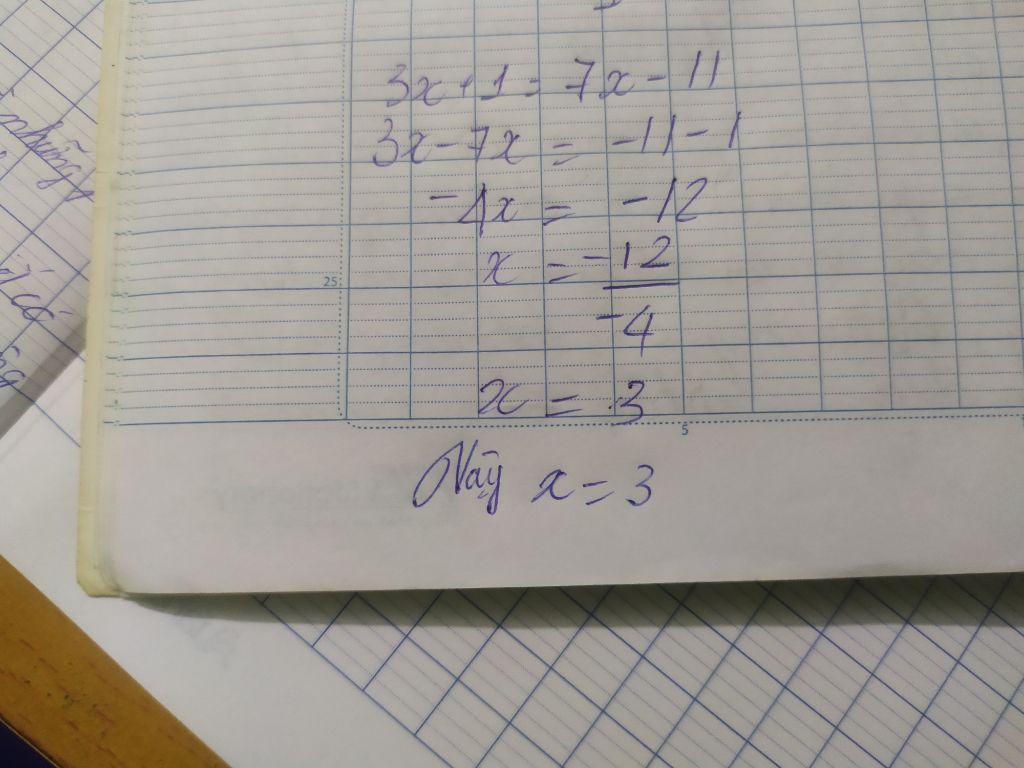 3x+1=7x-11
3x-7x=-11-1
-4x=-12
x=-12
-4
x=3
Vậy x=3
25
5
những
có